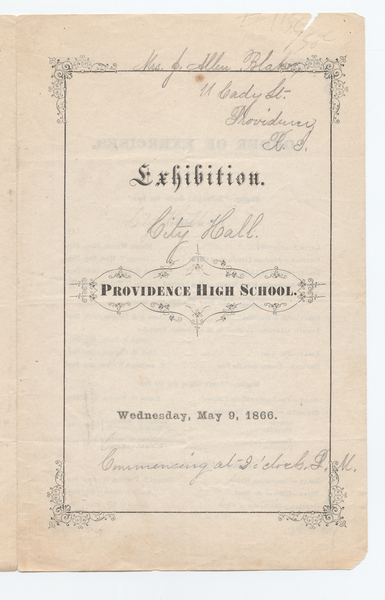 Mrs. J. Allen Blake
11 Cady St.
Providence
R. I.
Exhibition.
City Hall.
PROVIDENCE HIGH SCHOOL.
Wednesday, May 9, 1866.
Commencing at 2 o'clock P. M.